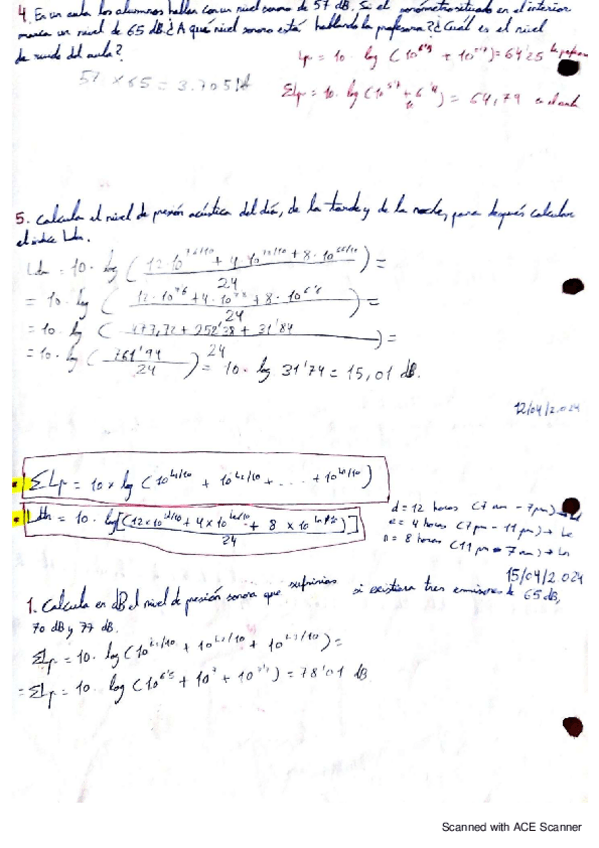 4. En un aula los alumnos hablan con un nivel sonoro de 57 dB. Si el sonómetro situado en el interior
marca un nivel de 65 dB ¿A qué nivel sonoro está hablando la profesora? ¿Cuál es el nivel
de ruido del aula?
Lp = 10 · log (10^6'5 + 10^5'7) = 64'25 la profesora
57 × 65 = 3.705
ΣLp = 10 · log (10^57 + 6'4) = 64,79 en el aula
5. Calcula el nivel de presión acústica del día, de la tarde y de la noche, para después calcular
el índice Ldn.
Ldn = 10 · log ( 12 · 10^76/10 + 4 · 10^73/10 + 8 · 10^66/10 / 24 ) =
= 10 · log ( 12 · 10^7'6 + 4 · 10^7'3 + 8 · 10^6'6 / 24 ) =
= 10 · log ( 477,72 + 252'38 + 31'84 / 24 ) =
= 10 · log ( 761'94 / 24 ) = 10 · log 31'74 = 15,01 dB.
12/04/2.024
ΣLp = 10 × log (10^L1/10 + 10^L2/10 + . . . + 10^L0/10)
Ldn = 10 · log [(12 × 10^Ld/10 + 4 × 10^Le/10 + 8 × 10^Ln/10)] / 24
d = 12 horas (7 am - 7 pm) → Ld
e = 4 horas (7 pm - 11 pm) → Le
n = 8 horas (11 pm - 7 am) → Ln
15/04/2.024
1. Calcula en dB el nivel de presión sonora que sufrirías si existiera tres emisores de 65 dB,
70 dB y 77 dB.
ΣLp = 10 · log (10^L1/10 + 10^L2/10 + 10^L3/10) =
= ΣLp = 10 · log (10^6'5 + 10^7 + 10^7'7) = 78'01 dB
Scanned with ACE Scanner